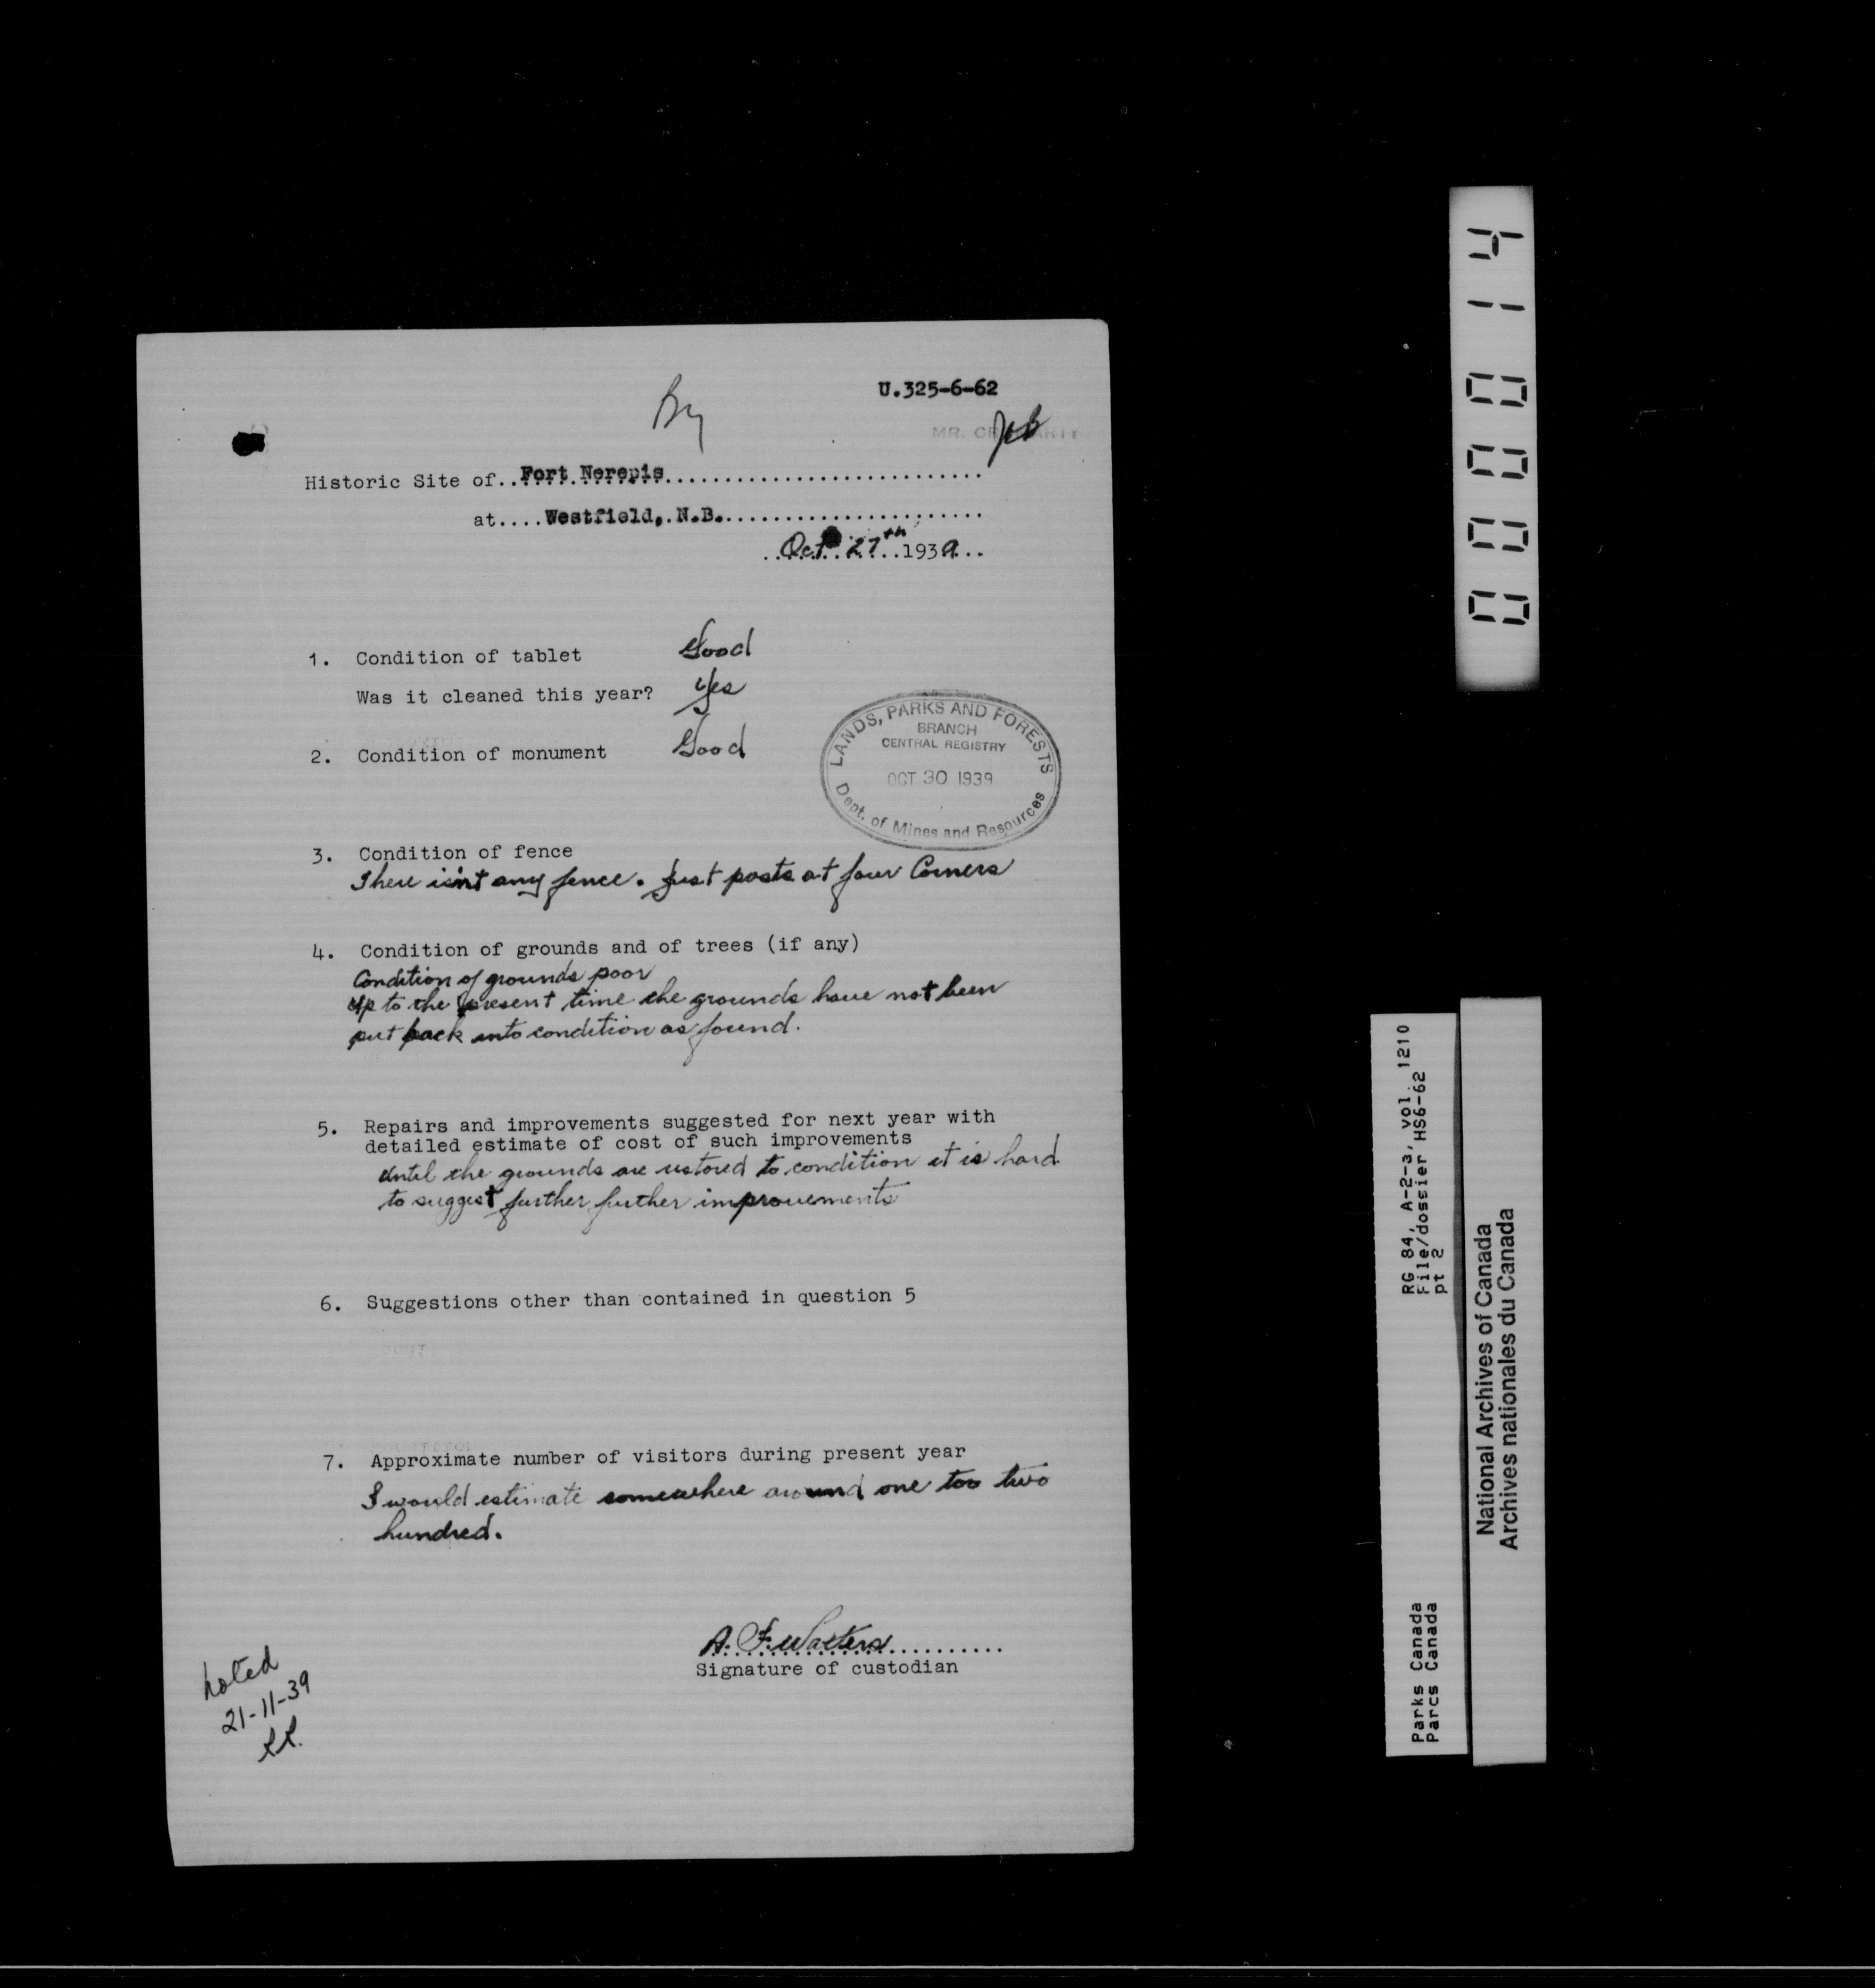 U.325-6-62
Historic Site of..Fort Nerepis
at....Westfield, N.B.
Oct 27th 1939
1. Condition of tablet Good
Was it cleaned this year? Yes
2. Condition of monument Good
LANDS, PARKS AND FORESTS
BRANCH
CENTRAL REGISTRY
OCT 30 1939
Dept. of Mines and Resources
3. Condition of fence
There isn't any fence. Just posts at four Corners
4. Condition of grounds and of trees (if any)
Condition of grounds poor
Up to the present time the grounds have not been
put back into condition as found.
5. Repairs and improvements suggested for next year with
detailed estimate of cost of such improvements
Until the grounds are restored to condition it is hard
to suggest further further improvements
6. Suggestions other than contained in question 5
7. Approximate number of visitors during present year
I would estimate somewhere around one too two
hundred.
A. F. Watters
Signature of custodian
noted
21-11-39
000014
RG 84, A-2-3, vol. 1210
File/dossier HS6-62
pt 2
Parks Canada
Parcs Canada
National Archives of Canada
Archives nationales du Canada